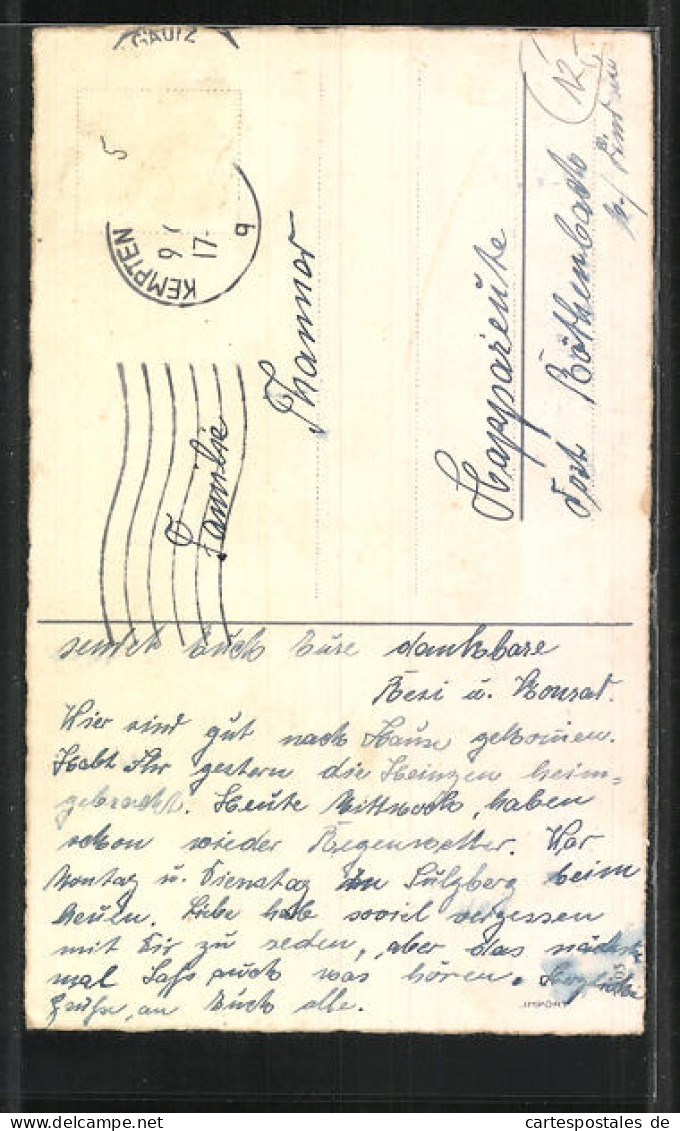 GÄU 12
KEMPTEN
9.
17-
9
5
12
Familie
Thanner
Happareute
Post Röthenbach
b./ Lindau
sendet Euch Eure dankbare
Resi u. Konrad.
Wir sind gut nach Hause gekommen.
Habt Ihr gestern die Heinzen heim=
gebracht. Heute Mittwoch, haben
schon wieder Regenwetter. War
Montag u. Dienstag in Sulzberg beim
heuen. Liebe hab soviel vergessen
mit Dir zu reden, aber das nächste
mal Lass auch was hören. Herzliche
Grüße, an Euch alle.
IMPORT
www.cartespostales.de